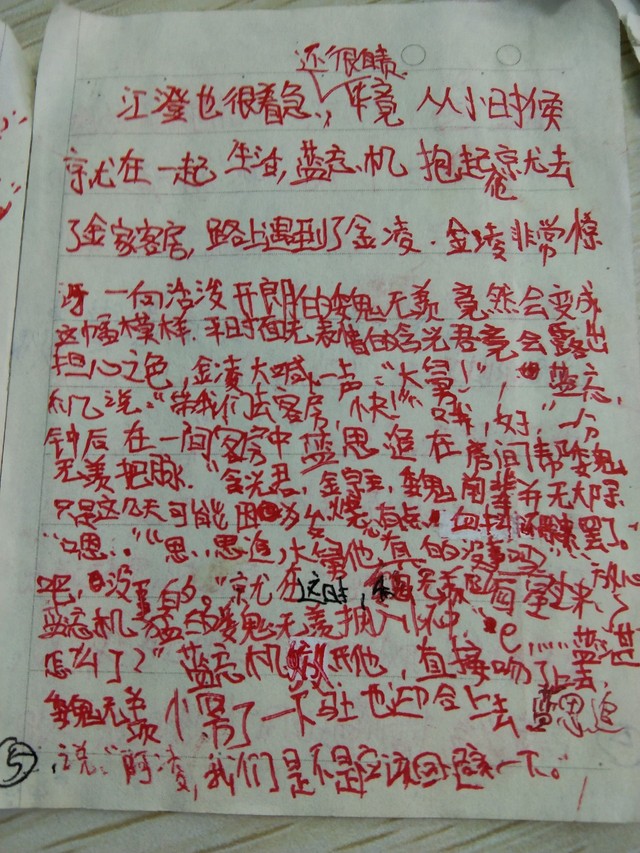 还很自责
江澄也很着急，毕竟从小时候
就在一起生活，蓝忘机抱起就尤去
他
了金家客房，路上遇到了金凌．金凌非常惊
讶一向活泼开朗的魏无羡竟然会变成
这幅大模样．平日时面无表情的含光君竟会露出
担心之色，金凌大喊一声：“大舅！”，蓝忘
机说：“带我们去客房，快！”“哦，好”一分
钟后在一间客房中蓝思追在房间帮魏
无羡把脉．“含光君，金宗主，魏前辈并无大碍
只是这几天可能因为发烧有点
罢了。
“嗯．”“思．思追，大舅他真的没事吗
吧，没事的。”就在这时，魏无羡醒过来
放心
蓝忘机猛的魏无羡拥入怀中．“e……蓝湛
怎么了？”蓝忘机
开他，直接吻了上去，
魏无羡小常了一下马上也迎合上去
蓝思追
说：“阿凌，我们是不是应该回避一下。”
5